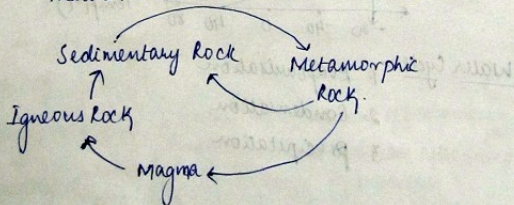 Sedimentary Rock
Metamorphic
Rock.
Igneous Rock
Magma